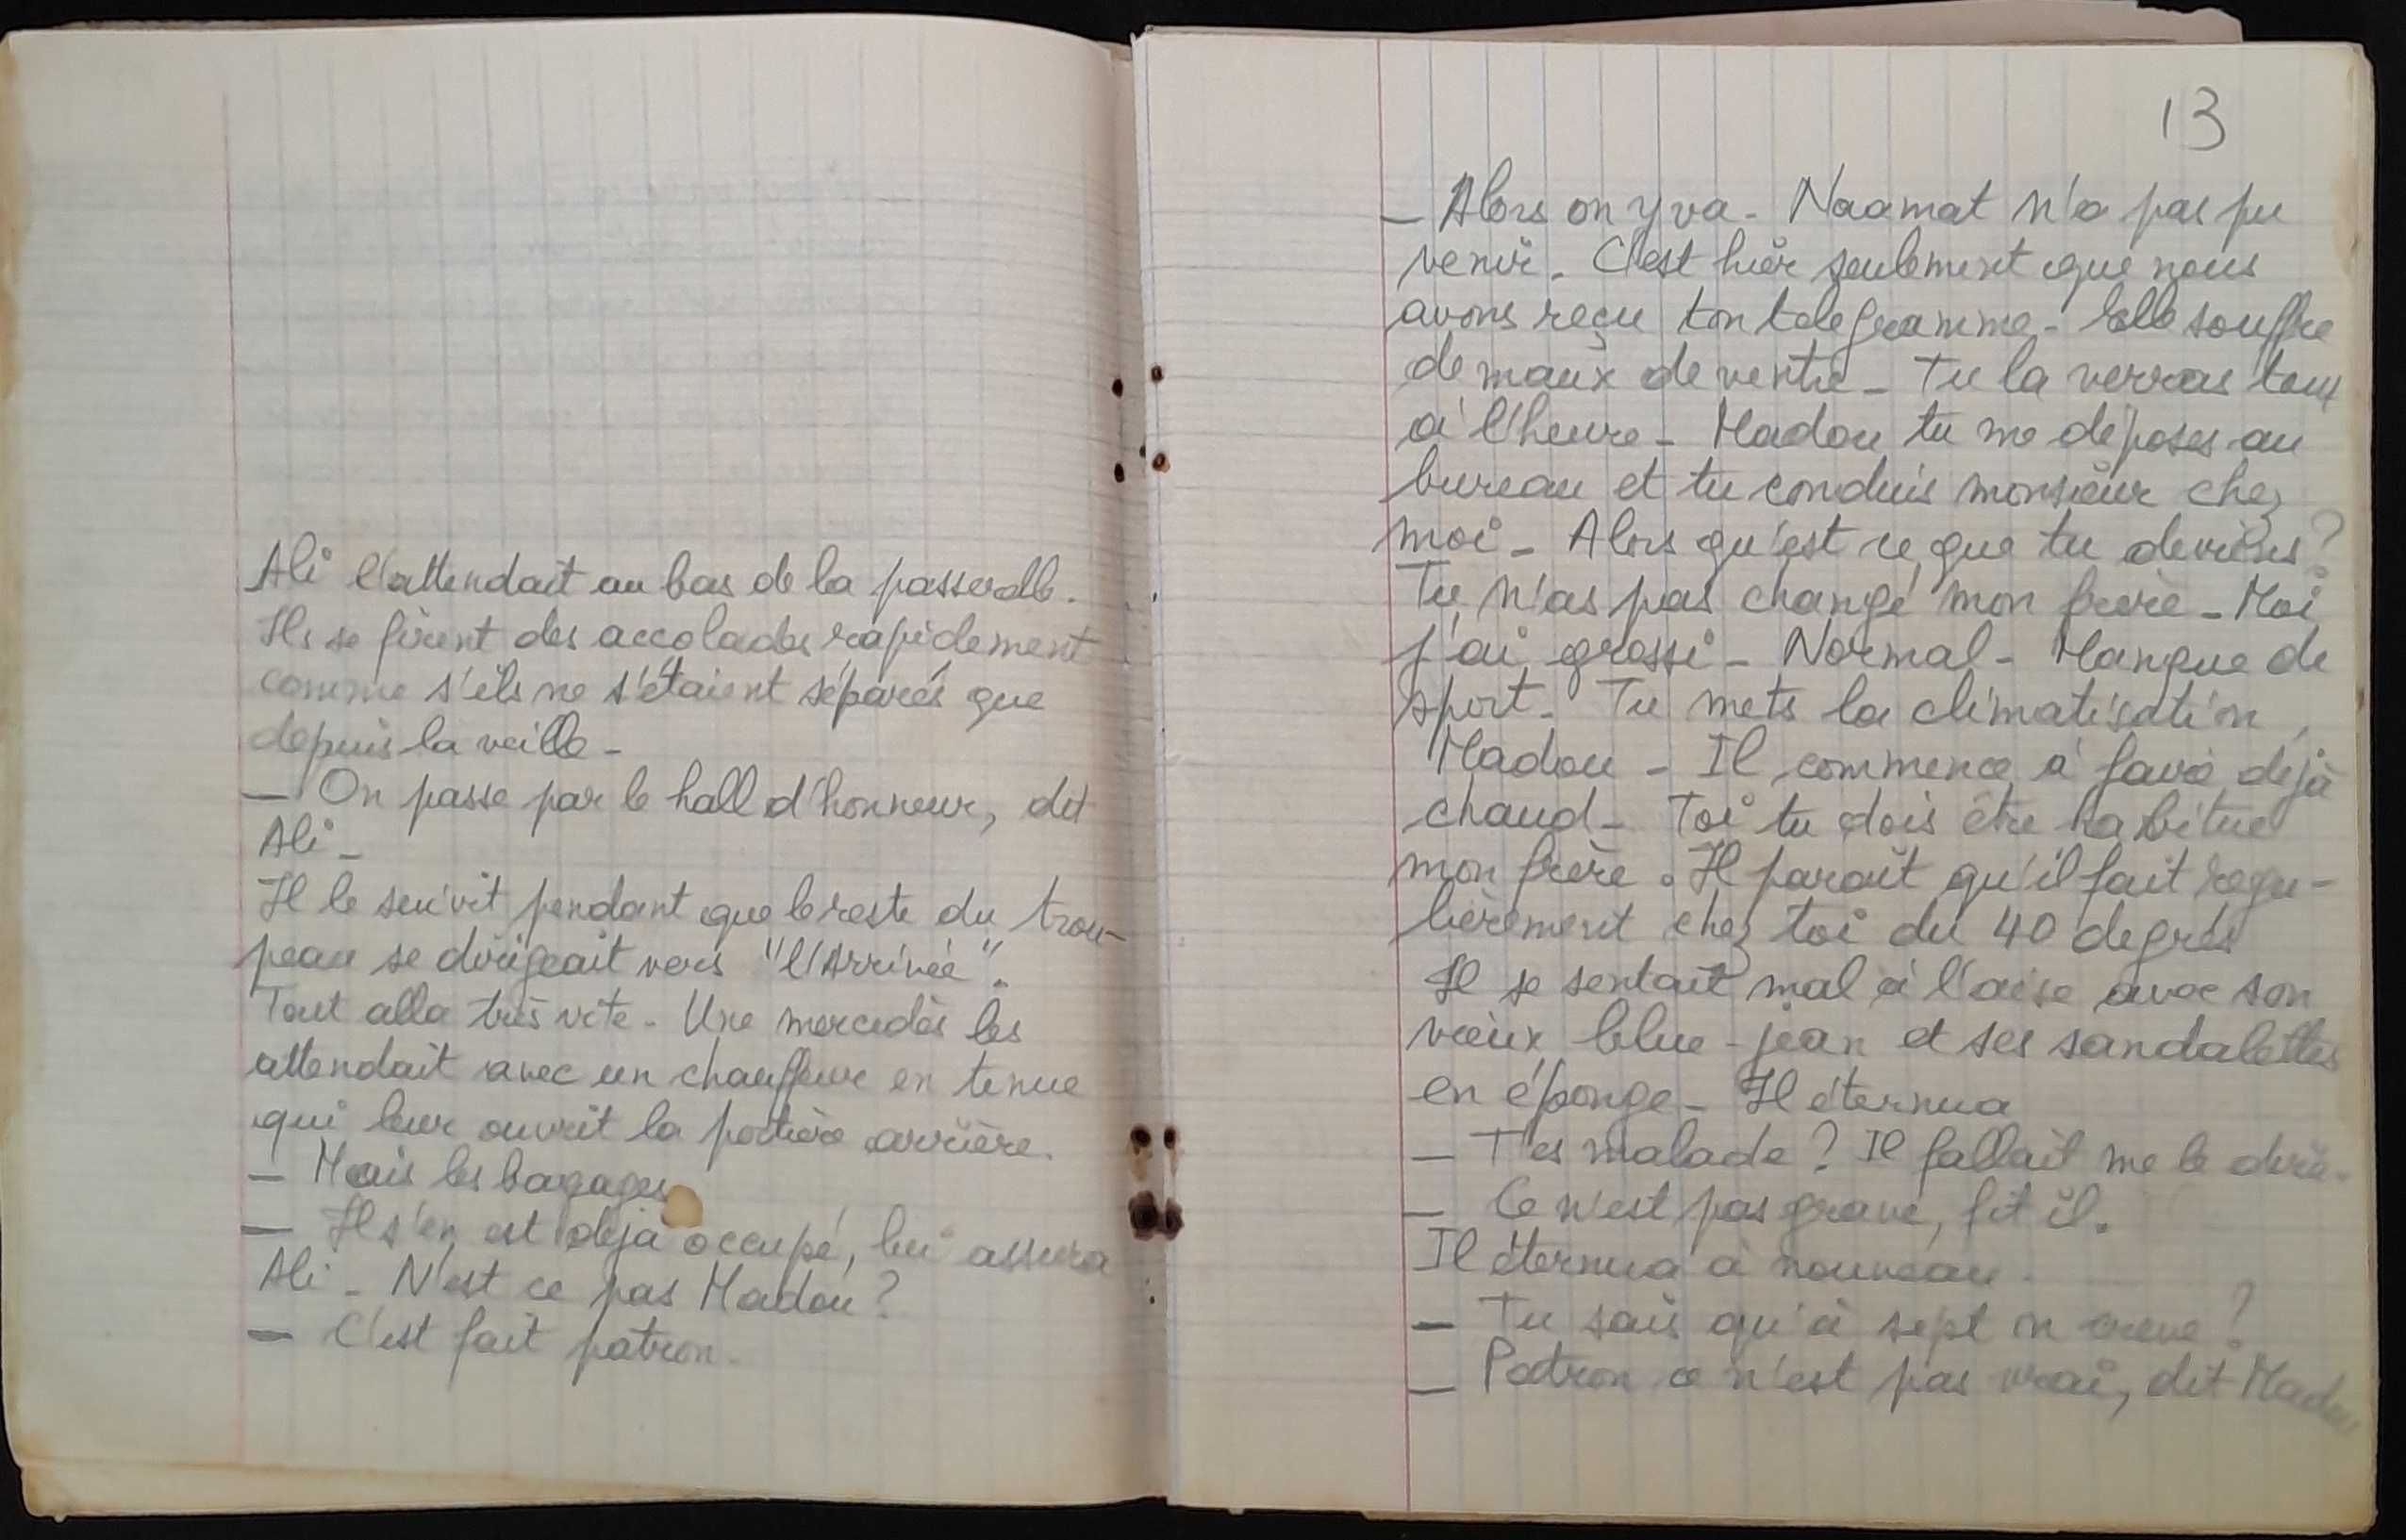 Ali l'attendait au bas de la passerelle.
Ils se firent des accolades rapidement
comme s'ils ne s'étaient séparés que
depuis la veille -
— On passe par le hall d'honneur, dit
Ali -
Il le suivit pendant que le reste du trou-
peau se dirigeait vers "l'Arrivée".
Tout alla très vite - Une mercedès les
attendait avec un chauffeur en tenue
qui leur ouvrit la portière arrière.
— Mais les bagages
— Il s'en est déja occupé, lui assura
Ali - N'est ce pas Madou ?
— C'est fait patron.
13
— Alors on y va - Naamat n'a pas pu
venir - C'est hier seulement que nous
avons reçu ton telegramme - Elle souffre
de maux de ventre - Tu la verras tout
à l'heure - Madou tu me déposes au
bureau et tu conduis monsieur chez
moi - Alors qu'est ce que tu deviens ?
Tu n'as pas changé mon frère - Moi
j'ai grossi - Normal - Manque de
sport - Tu mets la climatisation,
Madou - Il commence à faire dejà
chaud - Toi tu dois être habitué
mon frère. Il parait qu'il fait régu-
lièrement chez toi du 40 degrés
Il se sentait mal à l'aise avec son
vieux blue-jean et ses sandalettes
en éponge - Il éternua
— T'es malade ? Il fallait me le dire -
— Ce n'est pas grave, fit il.
Il éternua à nouveau.
— Tu sais qu'à sept on crève ?
— Patron ce n'est pas vrai, dit Madou